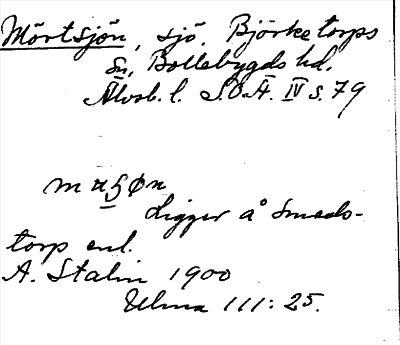 Mörtsjön, sjö. Björketorps
sn, Bollebygds hd.
Älvsb. l. S.O.Ä. IV s. 79
Ligger å Smeds-
torp enl.
A. Stalin 1900
Ulma 111: 25.